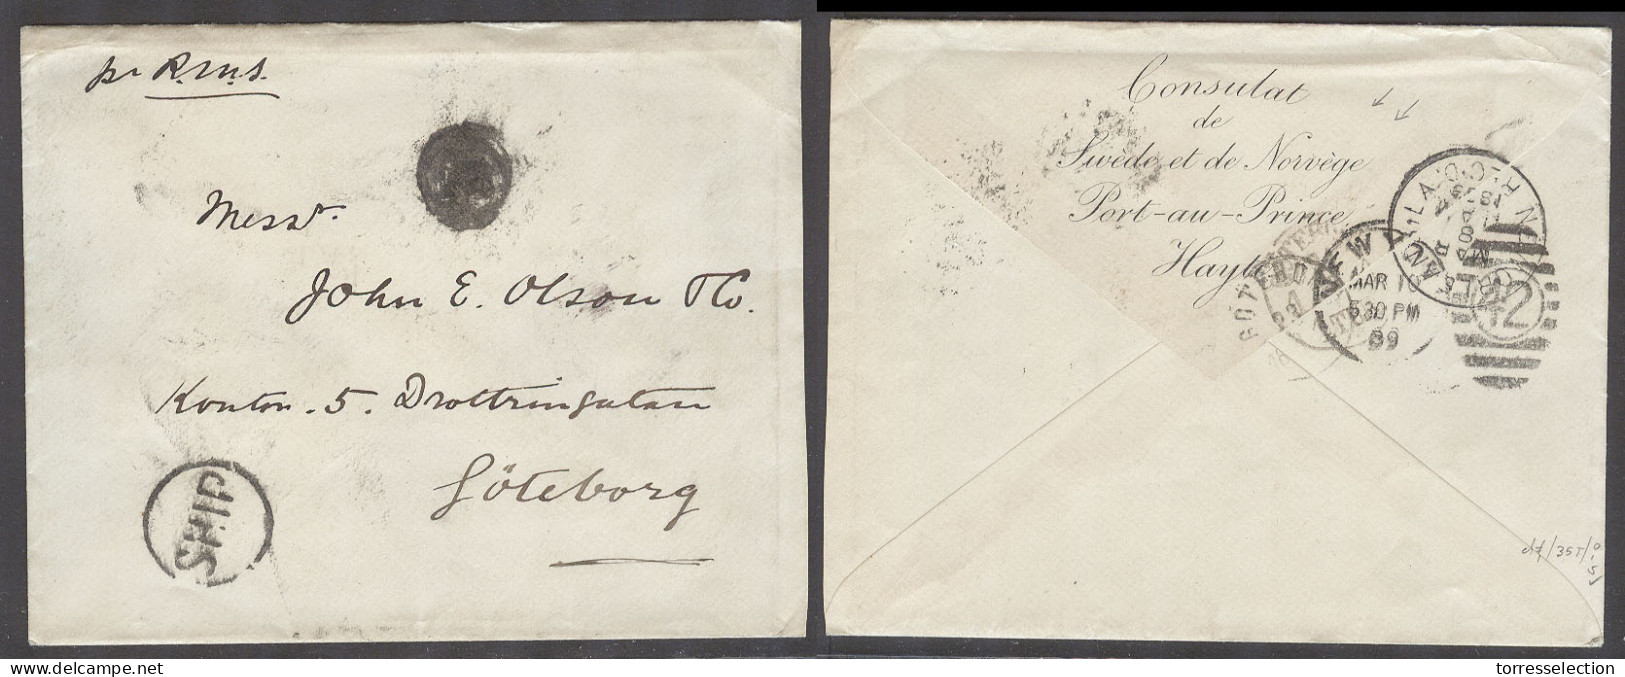 pr R.M.S.
Messrs.
John E. Olson & Co.
Kontor. 5. Drottninggatan
Göteborg
SHIP
Consulat
de
Swède et de Norvège
Port-au-Prince
Hayti
NEW
MAR 10
530 PM
89
NEW ORLEANS LA
MAR
12
torresselection